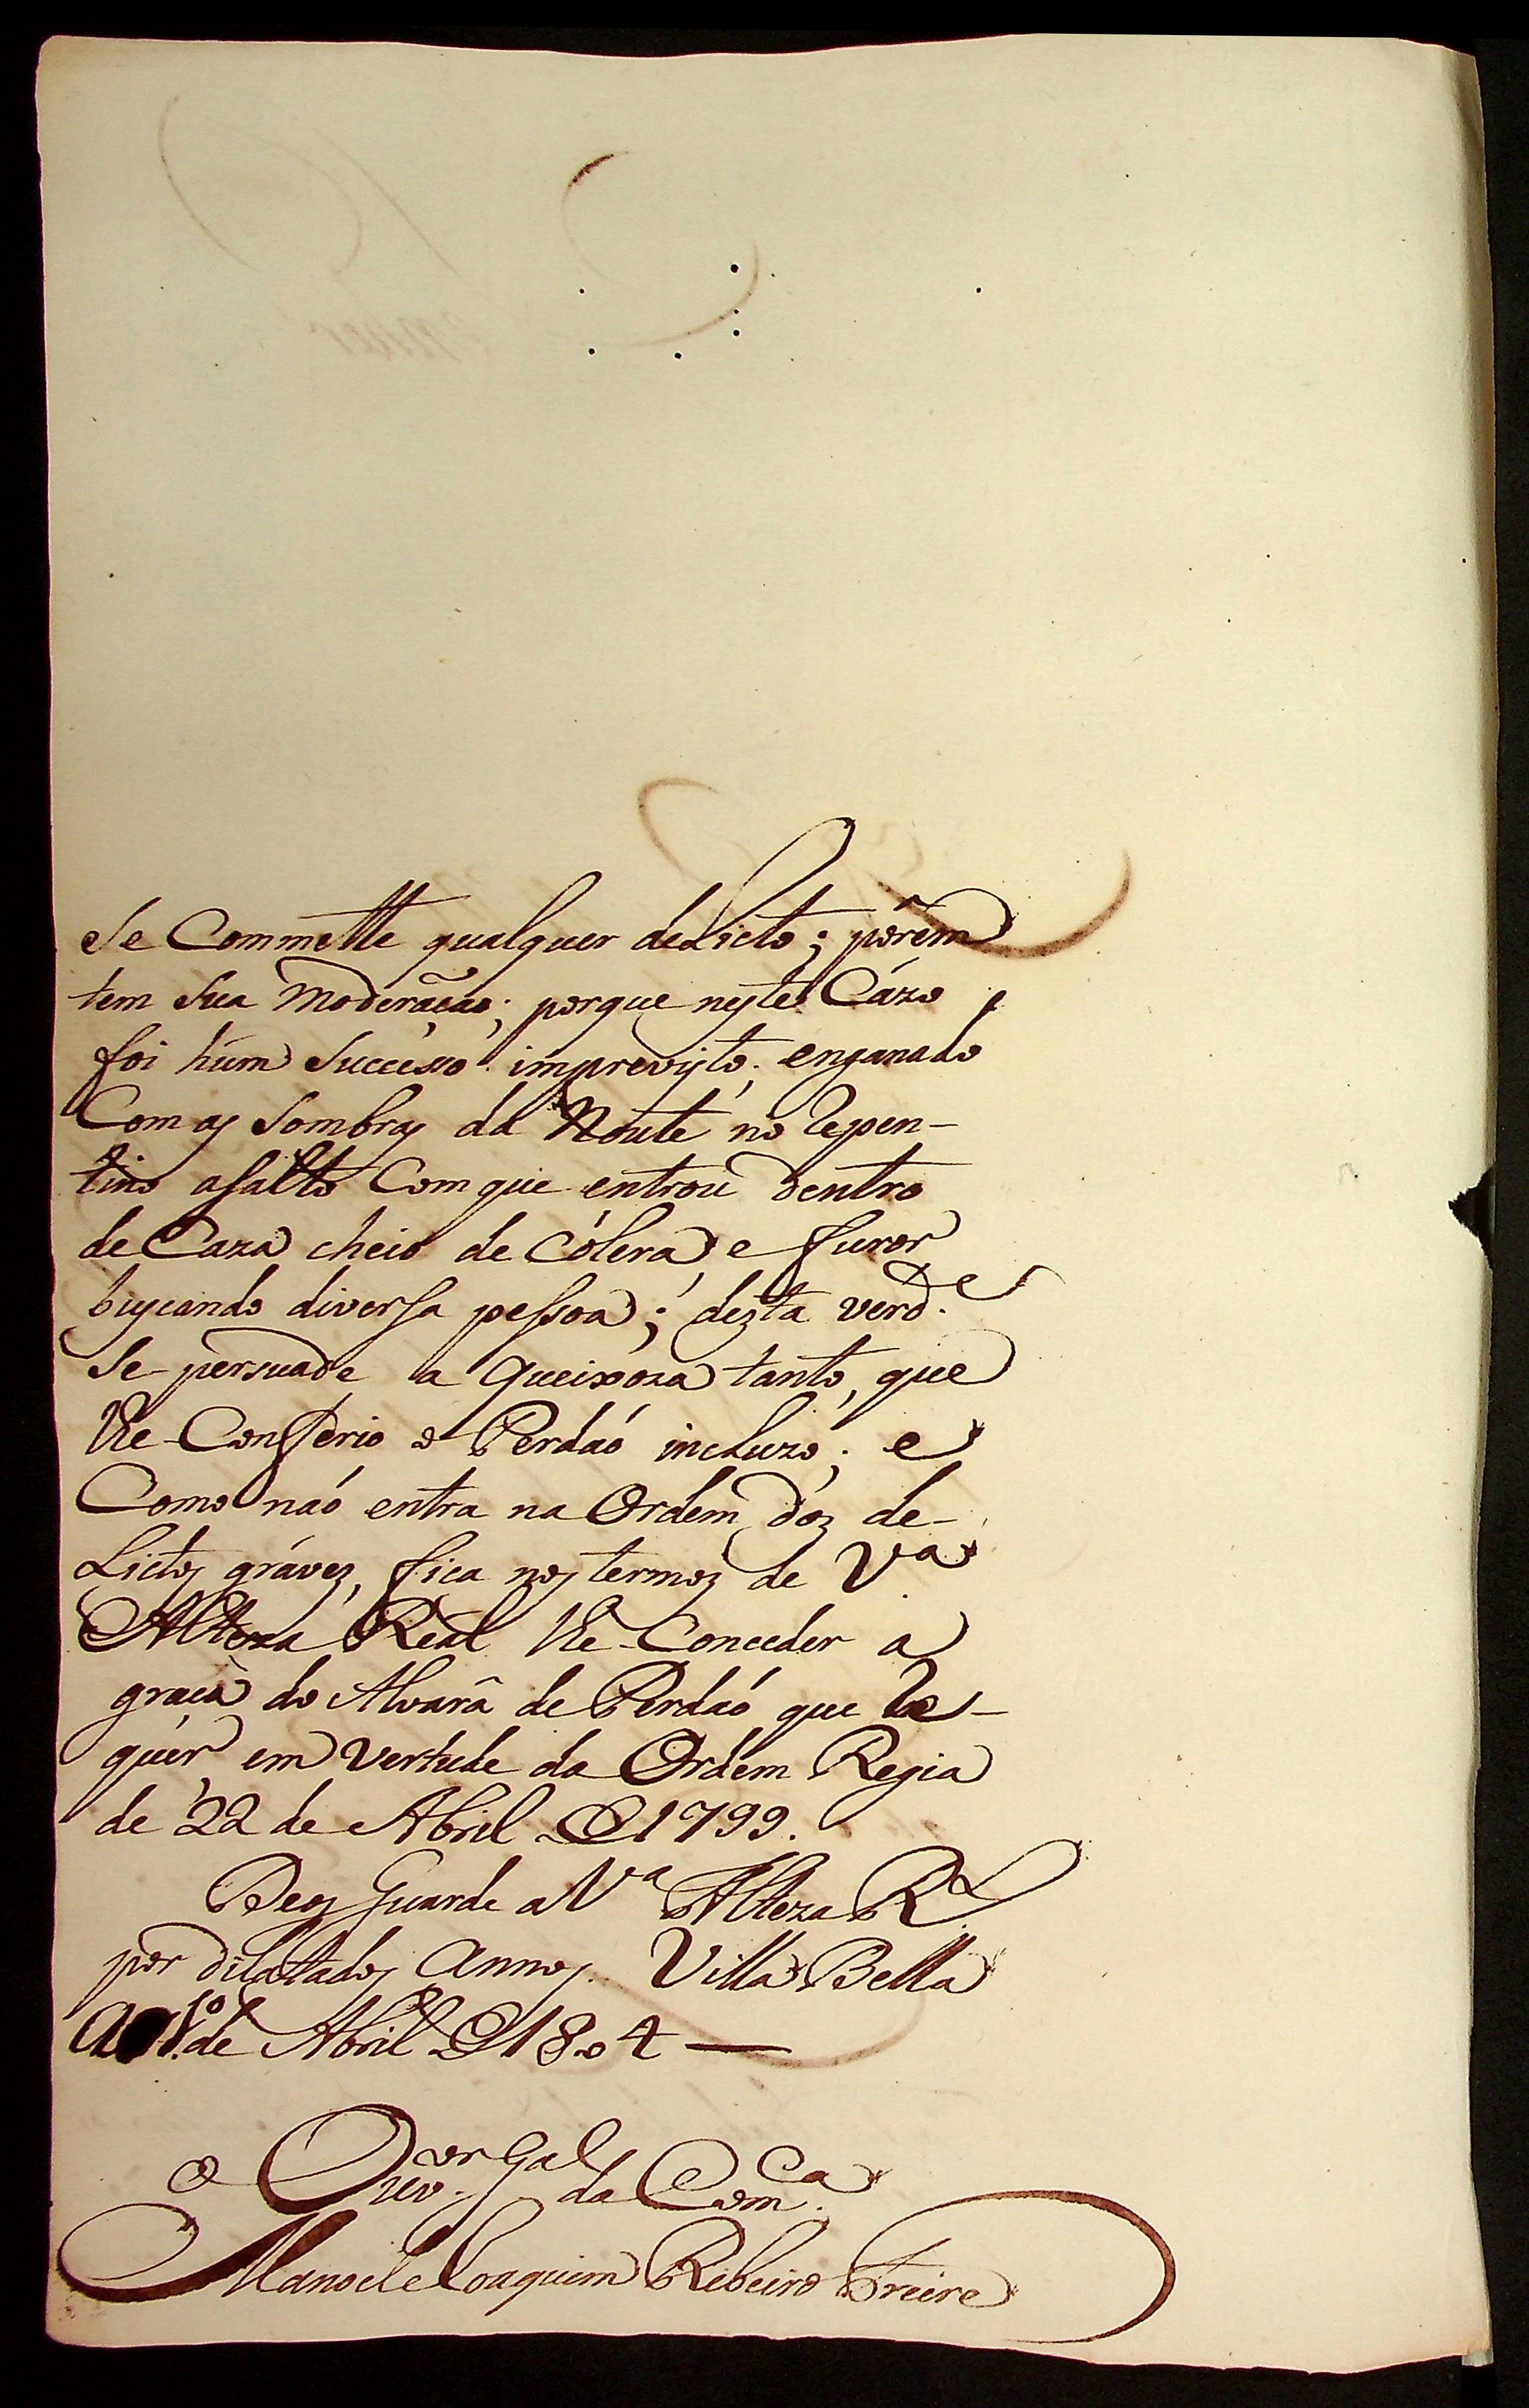 Se Commette qualquer deLicto; pórêm
tem Sua Moderaçaõ; porque neste Cázo,
foi húm Successo imprevisto; enganado
Com as Sombras da Noute no repen-
tino asalto Com que entrou dentro
de Caza cheio de Cólera, e furor
buscando diversa pessoa; dezta verd.e
Se-persuade a Queixoza tanto, que
lhe-Conferio o Perdaó incluzo; e
Como naó entra na Ordem dos de-
Lictos gráves, fica nos termos de V.a
Alteza Reál lhe-Conceder a
graça do Alvarâ de Perdaó que re-
quér em vertude da Ordém Regia
de 22 de Abril D 1799.
Deos Guarde a V.a Alteza R.l
por dilatados Annos. Villa Bella
a 1.º de Abril D 1804 —
O Ouv.or Gal da Com.ca
Manoel Joaquim Ribeiro Freire